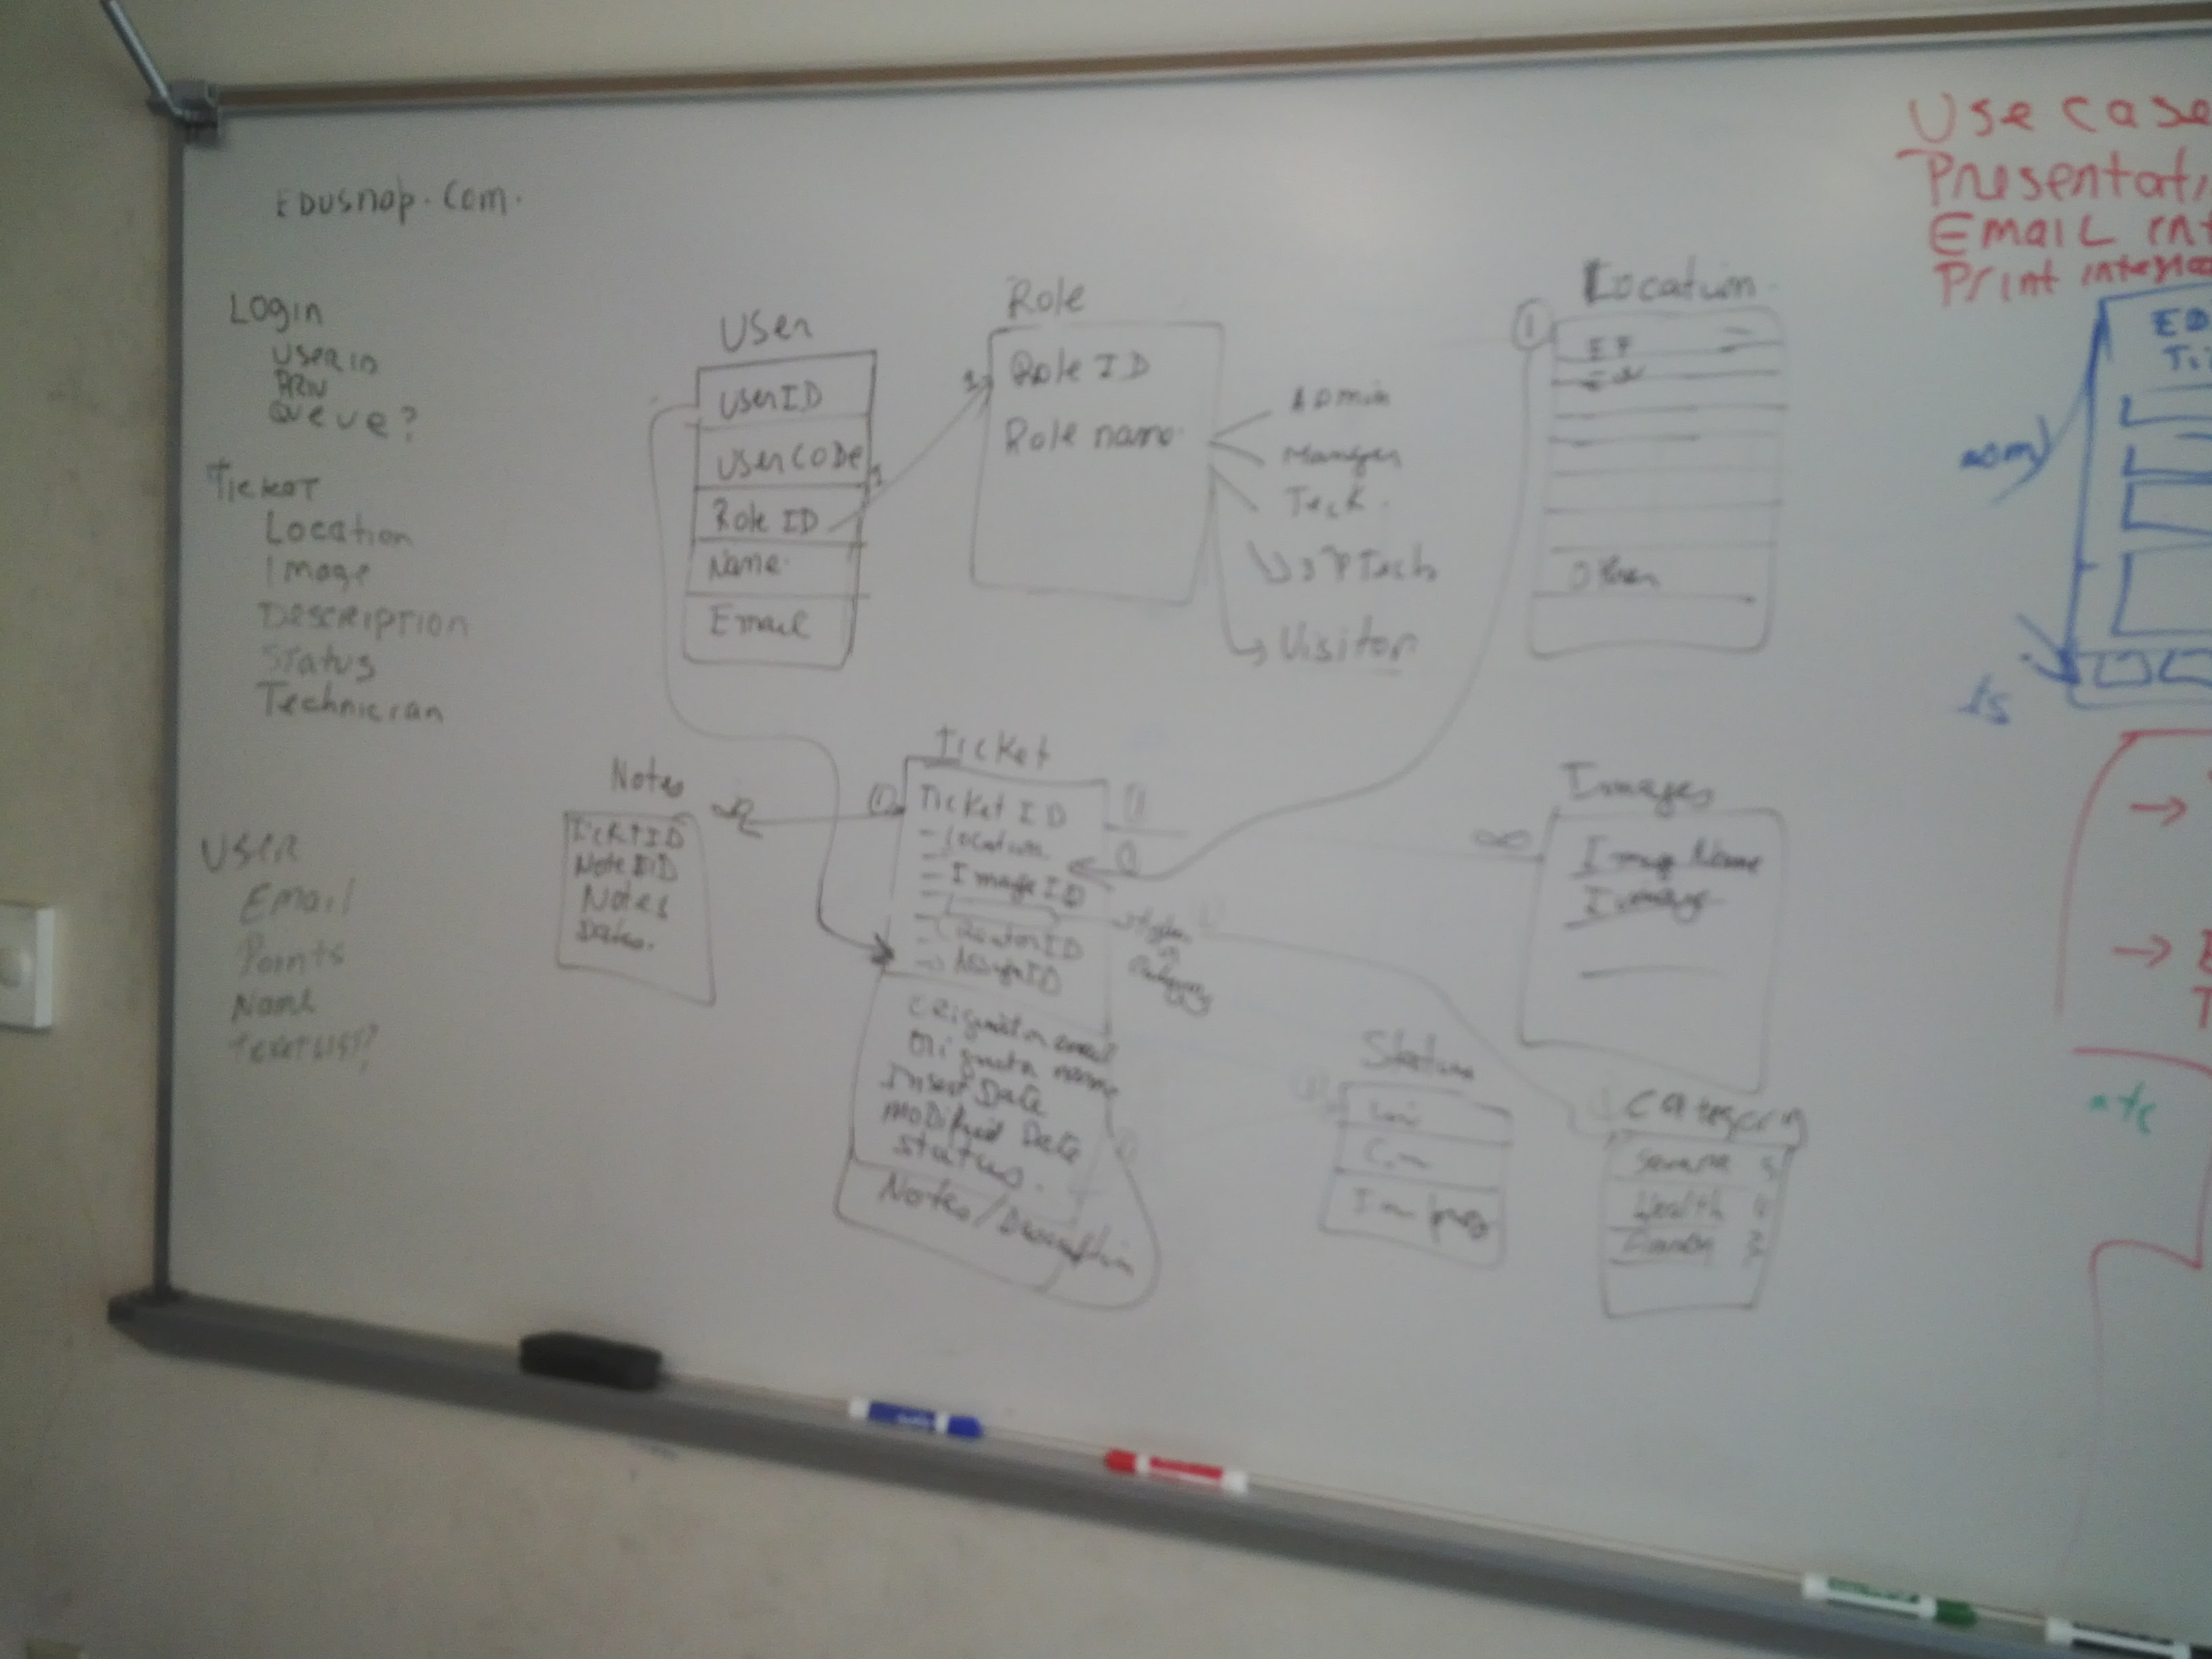 EDUSnap.com.
Login
USERID
Queue?
Ticket
Location
Image
DESCRIPTION
Status
Technician
User
Email
Points
Name
User
UserID
UserCODE
Role ID
Name
Email
1
1
Role
Role ID
Role name
Admin
Manager
Tech
Visitor
Location
1
Other
Notes
TicktID
Notes
Dates.
∞
1
Ticket
Ticket ID
- Location
- Image ID
1
1
Originator email
Originator name
Insert Date
Modified Date
Status.
Notes/Description
Images
∞
Image Name
Image
Status
Category
Health
Use case
Presentati
Email int
Print interfac
ED
Ti
ts